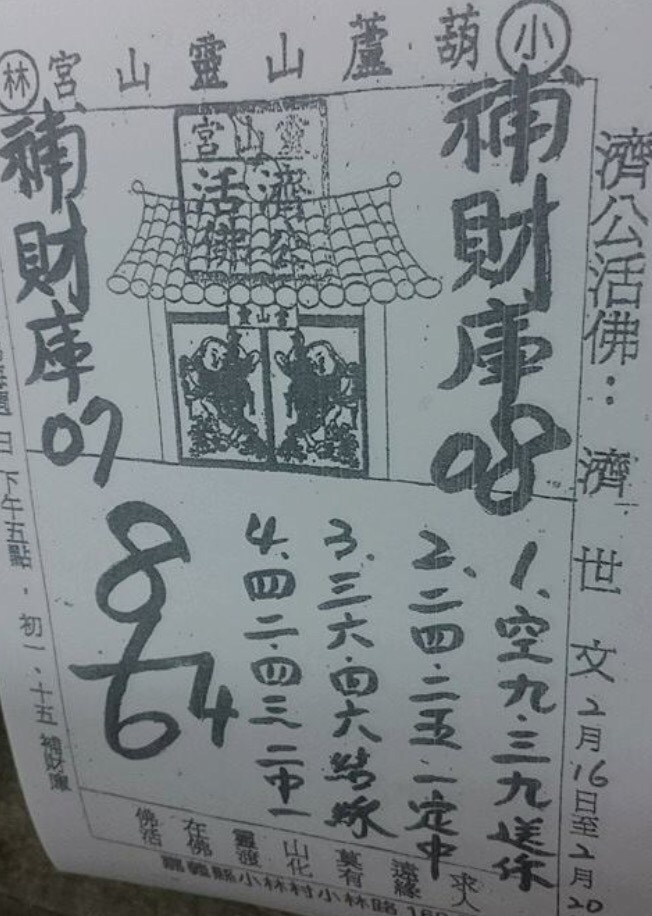 小 葫蘆山靈山宮 林
濟公活佛：濟世文 2月16日至2月20
補財庫08
靈山宮
濟公
活佛
靈山宮
補財庫07
1、空九．三九送你
2、二四．二五一定中
3、三六．四六結緣
4、四二．四三二中一
8
64
日下午五點，初一、十五 補財庫
求人
遠緣
莫有
山化
靈渡
在佛
佛活
嘉義縣小林村小林路